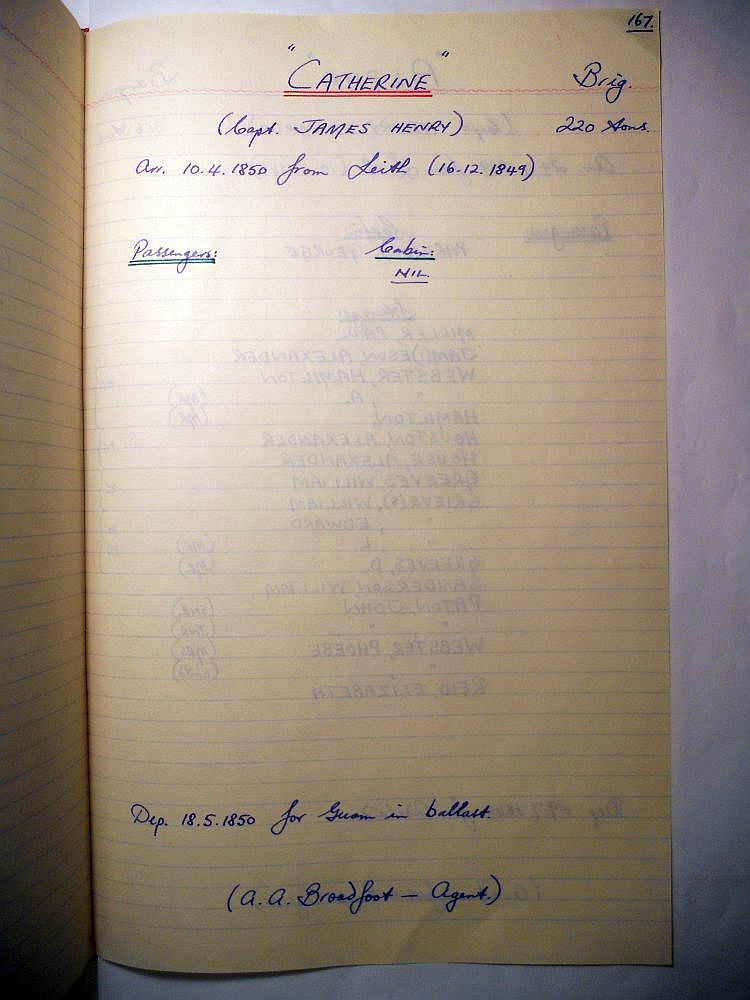 167.
"CATHERINE" Brig.
(Capt. JAMES HENRY) 220 tons.
Arr. 10.4.1850 from Leith (16.12.1849)
Passengers: Cabin:
NIL.
Dep. 18.5.1850 for Guam in ballast.
(A.A. Broadfoot — Agent.)